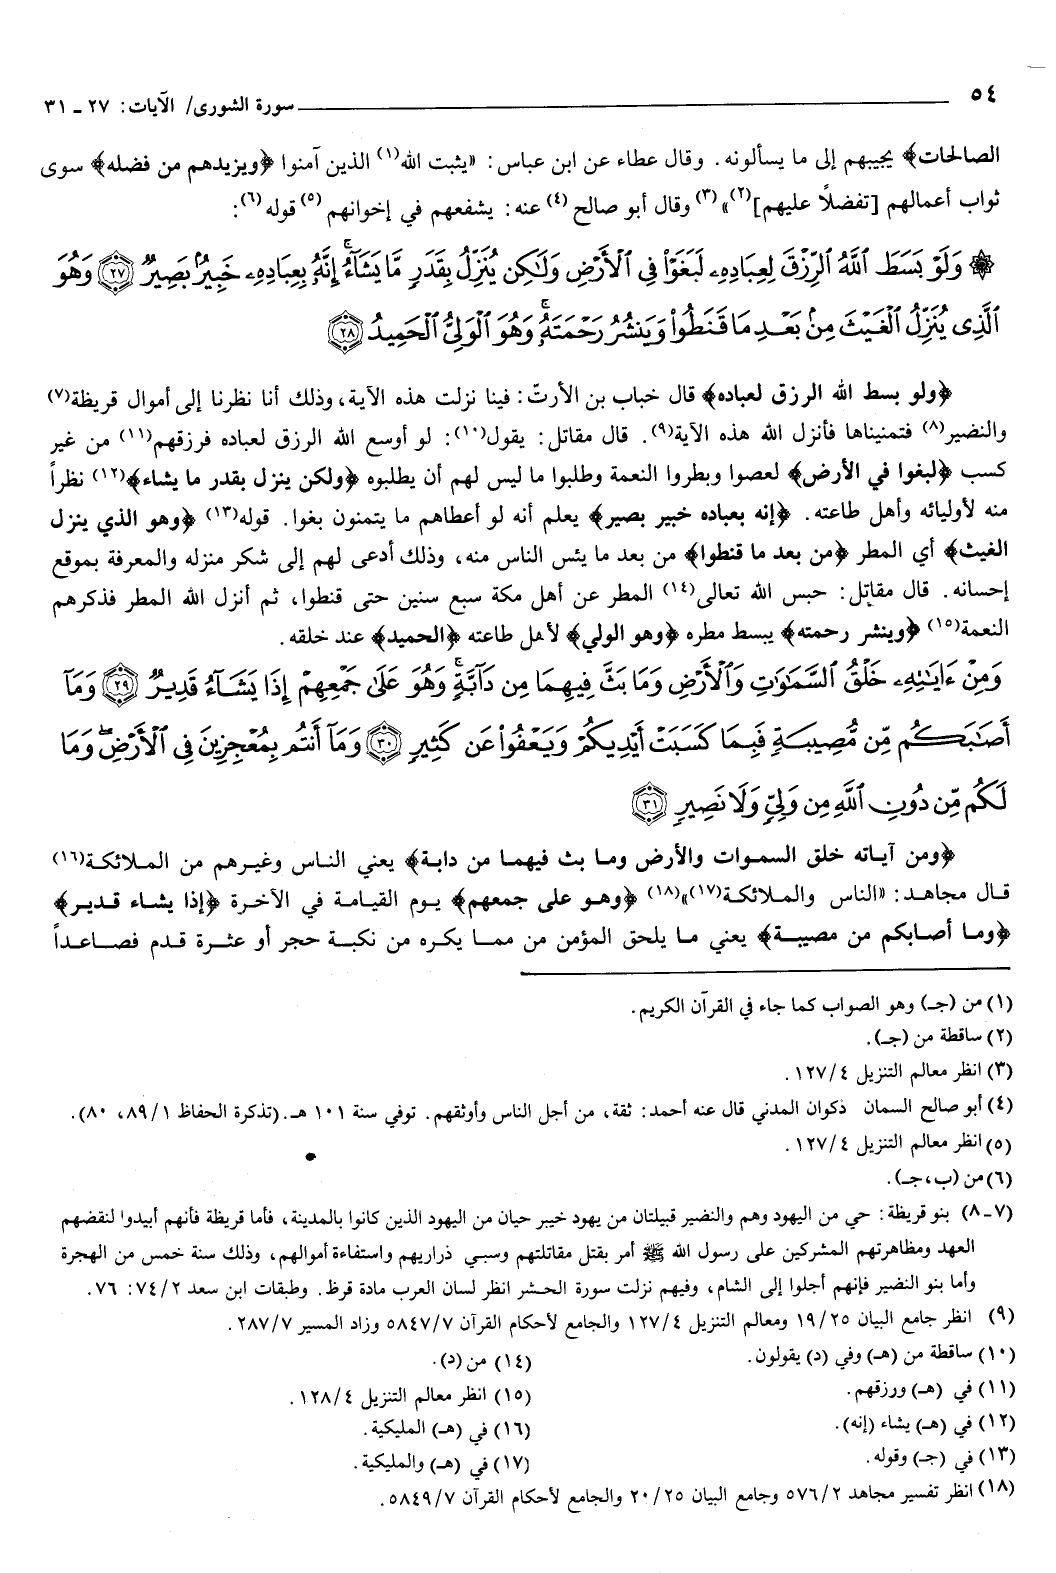 ٥٤ سورة الشورى/ الآيات: ٢٧ ـ ٣١
الصالحات﴾ يجيبهم إلى ما يسألونه. وقال عطاء عن ابن عباس: «يثبت الله(١) الذين آمنوا ﴿ويزيدهم من فضله﴾ سوى
ثواب أعمالهم [تفضلاً عليهم](٢)»(٣) وقال أبو صالح(٤) عنه: يشفعهم في إخوانهم(٥) قوله(٦):
۞ وَلَوْ بَسَطَ ٱللَّهُ ٱلرِّزْقَ لِعِبَادِهِۦ لَبَغَوْا۟ فِى ٱلْأَرْضِ وَلَٰكِن يُنَزِّلُ بِقَدَرٍ مَّا يَشَآءُ ۚ إِنَّهُۥ بِعِبَادِهِۦ خَبِيرٌۢ بَصِيرٌ ﴿٢٧﴾ وَهُوَ
ٱلَّذِى يُنَزِّلُ ٱلْغَيْثَ مِنۢ بَعْدِ مَا قَنَطُوا۟ وَيَنشُرُ رَحْمَتَهُۥ ۚ وَهُوَ ٱلْوَلِىُّ ٱلْحَمِيدُ ﴿٢٨﴾
﴿ولو بسط الله الرزق لعباده﴾ قال خباب بن الأرتّ: فينا نزلت هذه الآية، وذلك أنا نظرنا إلى أموال قريظة(٧)
والنضير(٨) فتمنيناها فأنزل الله هذه الآية(٩). قال مقاتل: يقول(١٠): لو أوسع الله الرزق لعباده فرزقهم(١١) من غير
كسب ﴿لبغوا في الأرض﴾ لعصوا وبطروا النعمة وطلبوا ما ليس لهم أن يطلبوه ﴿ولكن ينزل بقدر ما يشاء﴾(١٢) نظراً
منه لأوليائه وأهل طاعته. ﴿إنه بعباده خبير بصير﴾ يعلم أنه لو أعطاهم ما يتمنون بغوا. قوله(١٣) ﴿وهو الذي ينزل
الغيث﴾ أي المطر ﴿من بعد ما قنطوا﴾ من بعد ما يئس الناس منه، وذلك أدعى لهم إلى شكر منزله والمعرفة بموقع
إحسانه. قال مقاتل: حبس الله تعالى(١٤) المطر عن أهل مكة سبع سنين حتى قنطوا، ثم أنزل الله المطر فذكرهم
النعمة(١٥) ﴿وينشر رحمته﴾ يبسط مطره ﴿وهو الولي﴾ لأهل طاعته ﴿الحميد﴾ عند خلقه.
وَمِنْ ءَايَٰتِهِۦ خَلْقُ ٱلسَّمَٰوَٰتِ وَٱلْأَرْضِ وَمَا بَثَّ فِيهِمَا مِن دَآبَّةٍ ۚ وَهُوَ عَلَىٰ جَمْعِهِمْ إِذَا يَشَآءُ قَدِيرٌ ﴿٢٩﴾ وَمَآ
أَصَٰبَكُم مِّن مُّصِيبَةٍ فَبِمَا كَسَبَتْ أَيْدِيكُمْ وَيَعْفُوا۟ عَن كَثِيرٍ ﴿٣٠﴾ وَمَآ أَنتُم بِمُعْجِزِينَ فِى ٱلْأَرْضِ ۖ وَمَا
لَكُم مِّن دُونِ ٱللَّهِ مِن وَلِىٍّ وَلَا نَصِيرٍ ﴿٣١﴾
﴿ومن آياته خلق السموات والأرض وما بث فيهما من دابة﴾ يعني الناس وغيرهم من الملائكة(١٦)
قال مجاهد: «الناس والملائكة(١٧)»(١٨) ﴿وهو على جمعهم﴾ يوم القيامة في الآخرة ﴿إذا يشاء قدير﴾
﴿وما أصابكم من مصيبة﴾ يعني ما يلحق المؤمن من مما يكره من نكبة حجر أو عثرة قدم فصاعداً
(١) من (جـ) وهو الصواب كما جاء في القرآن الكريم.
(٢) ساقطة من (جـ).
(٣) انظر معالم التنزيل ٤/ ١٢٧.
(٤) أبو صالح السمان ذكوان المدني قال عنه أحمد: ثقة، من أجل الناس وأوثقهم. توفي سنة ١٠١ هـ. (تذكرة الحفاظ ١/ ٨٩، ٨٠).
(٥) انظر معالم التنزيل ٤/ ١٢٧.
(٦) من (ب، جـ).
(٧ـ٨) بنو قريظة: حي من اليهود وهم والنضير قبيلتان من يهود خيبر حيان من اليهود الذين كانوا بالمدينة، فأما قريظة فأنهم أبيدوا لنقضهم
العهد ومظاهرتهم المشركين على رسول الله ﷺ أمر بقتل مقاتلتهم وسبي ذراريهم واستفاءة أموالهم، وذلك سنة خمس من الهجرة
وأما بنو النضير فإنهم أجلوا إلى الشام، وفيهم نزلت سورة الحشر انظر لسان العرب مادة قرظ. وطبقات ابن سعد ٢/ ٧٤: ٧٦.
(٩) انظر جامع البيان ٢٥/ ١٩ ومعالم التنزيل ٤/ ١٢٧ والجامع لأحكام القرآن ٧/ ٥٨٤٧ وزاد المسير ٧/ ٢٨٧.
(١٠) ساقطة من (هـ) وفي (د) يقولون. (١٤) من (د).
(١١) في (هـ) ورزقهم. (١٥) انظر معالم التنزيل ٤/ ١٢٨.
(١٢) في (هـ) يشاء (إنه). (١٦) في (هـ) المليكية.
(١٣) في (جـ) وقوله. (١٧) في (هـ) والمليكية.
(١٨) انظر تفسير مجاهد ٢/ ٥٧٦ وجامع البيان ٢٥/ ٢٠ والجامع لأحكام القرآن ٧/ ٥٨٤٩.